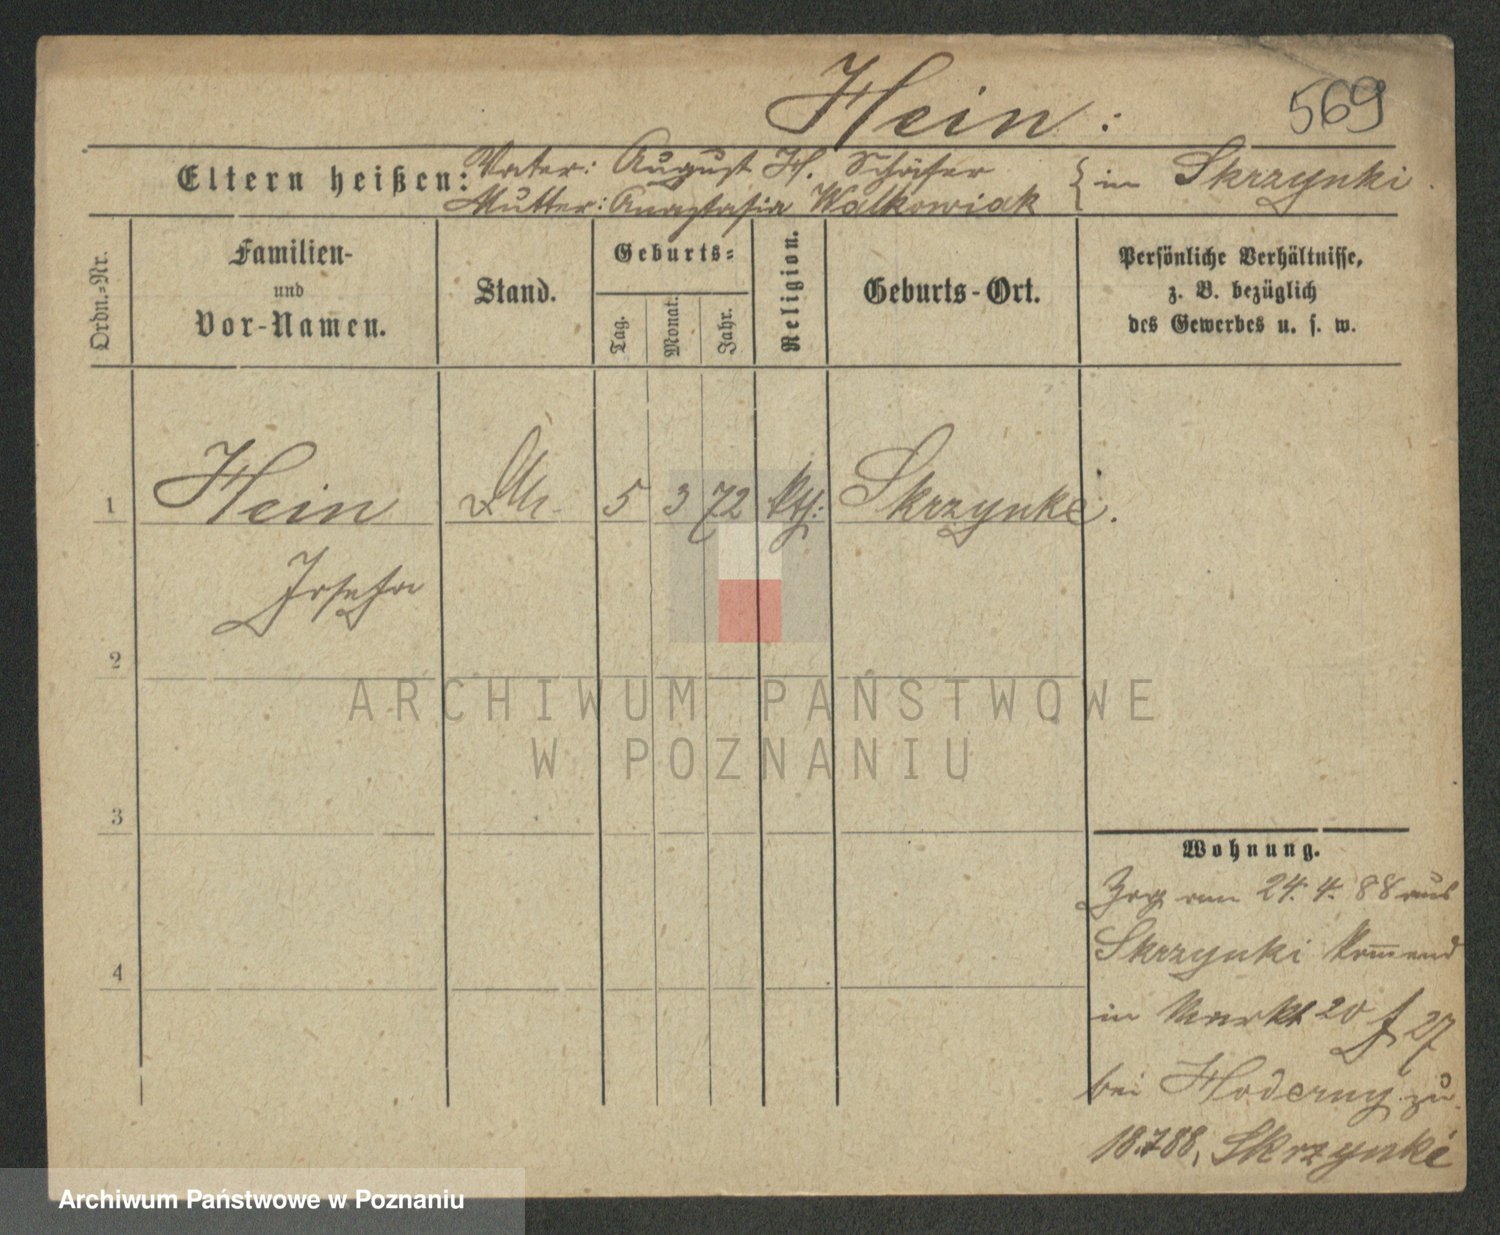 Hein:
569
Eltern heißen: Vater: August H. Schäfer
Mutter: Anastasia Walkowiak } in Skrzynki.
Ordn.-Nr.
Familien-
und
Vor-Namen.
Stand.
Geburts-
Tag.
Monat.
Jahr.
Religion.
Geburts-Ort.
Persönliche Verhältnisse,
z. B. bezüglich
des Gewerbes u. s. w.
1 Hein 5 3 72 kth: Skrzynki.
Josefa
2
3
4
Wohnung.
Zog am 24. 4. 88 aus
Skrzynki kommend
in Markt 20 f 27
bei zu
18.7.88, Skrzynki
ARCHIWUM PAŃSTWOWE
W POZNANIU
Archiwum Państwowe w Poznaniu